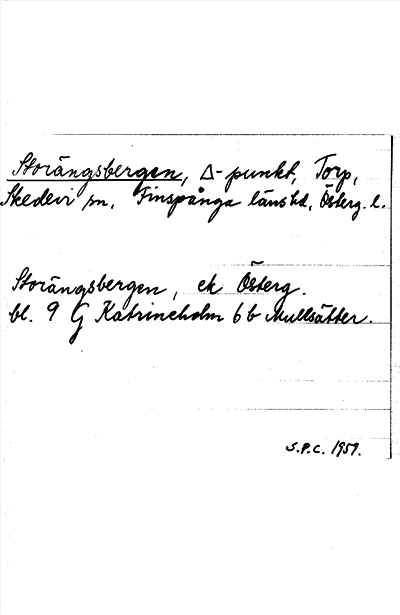 Storängsbergen, Δ-punkt, Torp,
Skedevi sn, Finspånga länshd, Österg. l.
Storängsbergen, ek Österg.
bl. 9 G Katrineholm 6 b Mullsätter.
S.P.C. 1959.